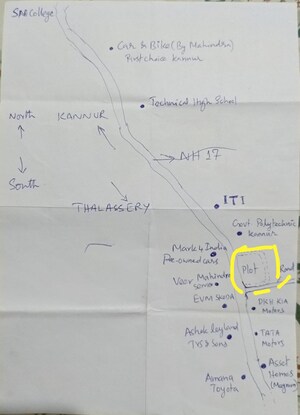 SN College
Car & Bike (By Mahindra)
First choice Kannur
Technical High School
North
KANNUR
NH 17
South
THALASSERY
ITI
Govt Polytechnic
Kannur
Mark 4 India
Pre-owned cars
Plot
Road
Veer Mahindra
EVM SKODA
DKH KIA
Motors
Ashok Leyland
TVS & Sons
TATA
Motors
Asset
Homes
Amana
Toyota